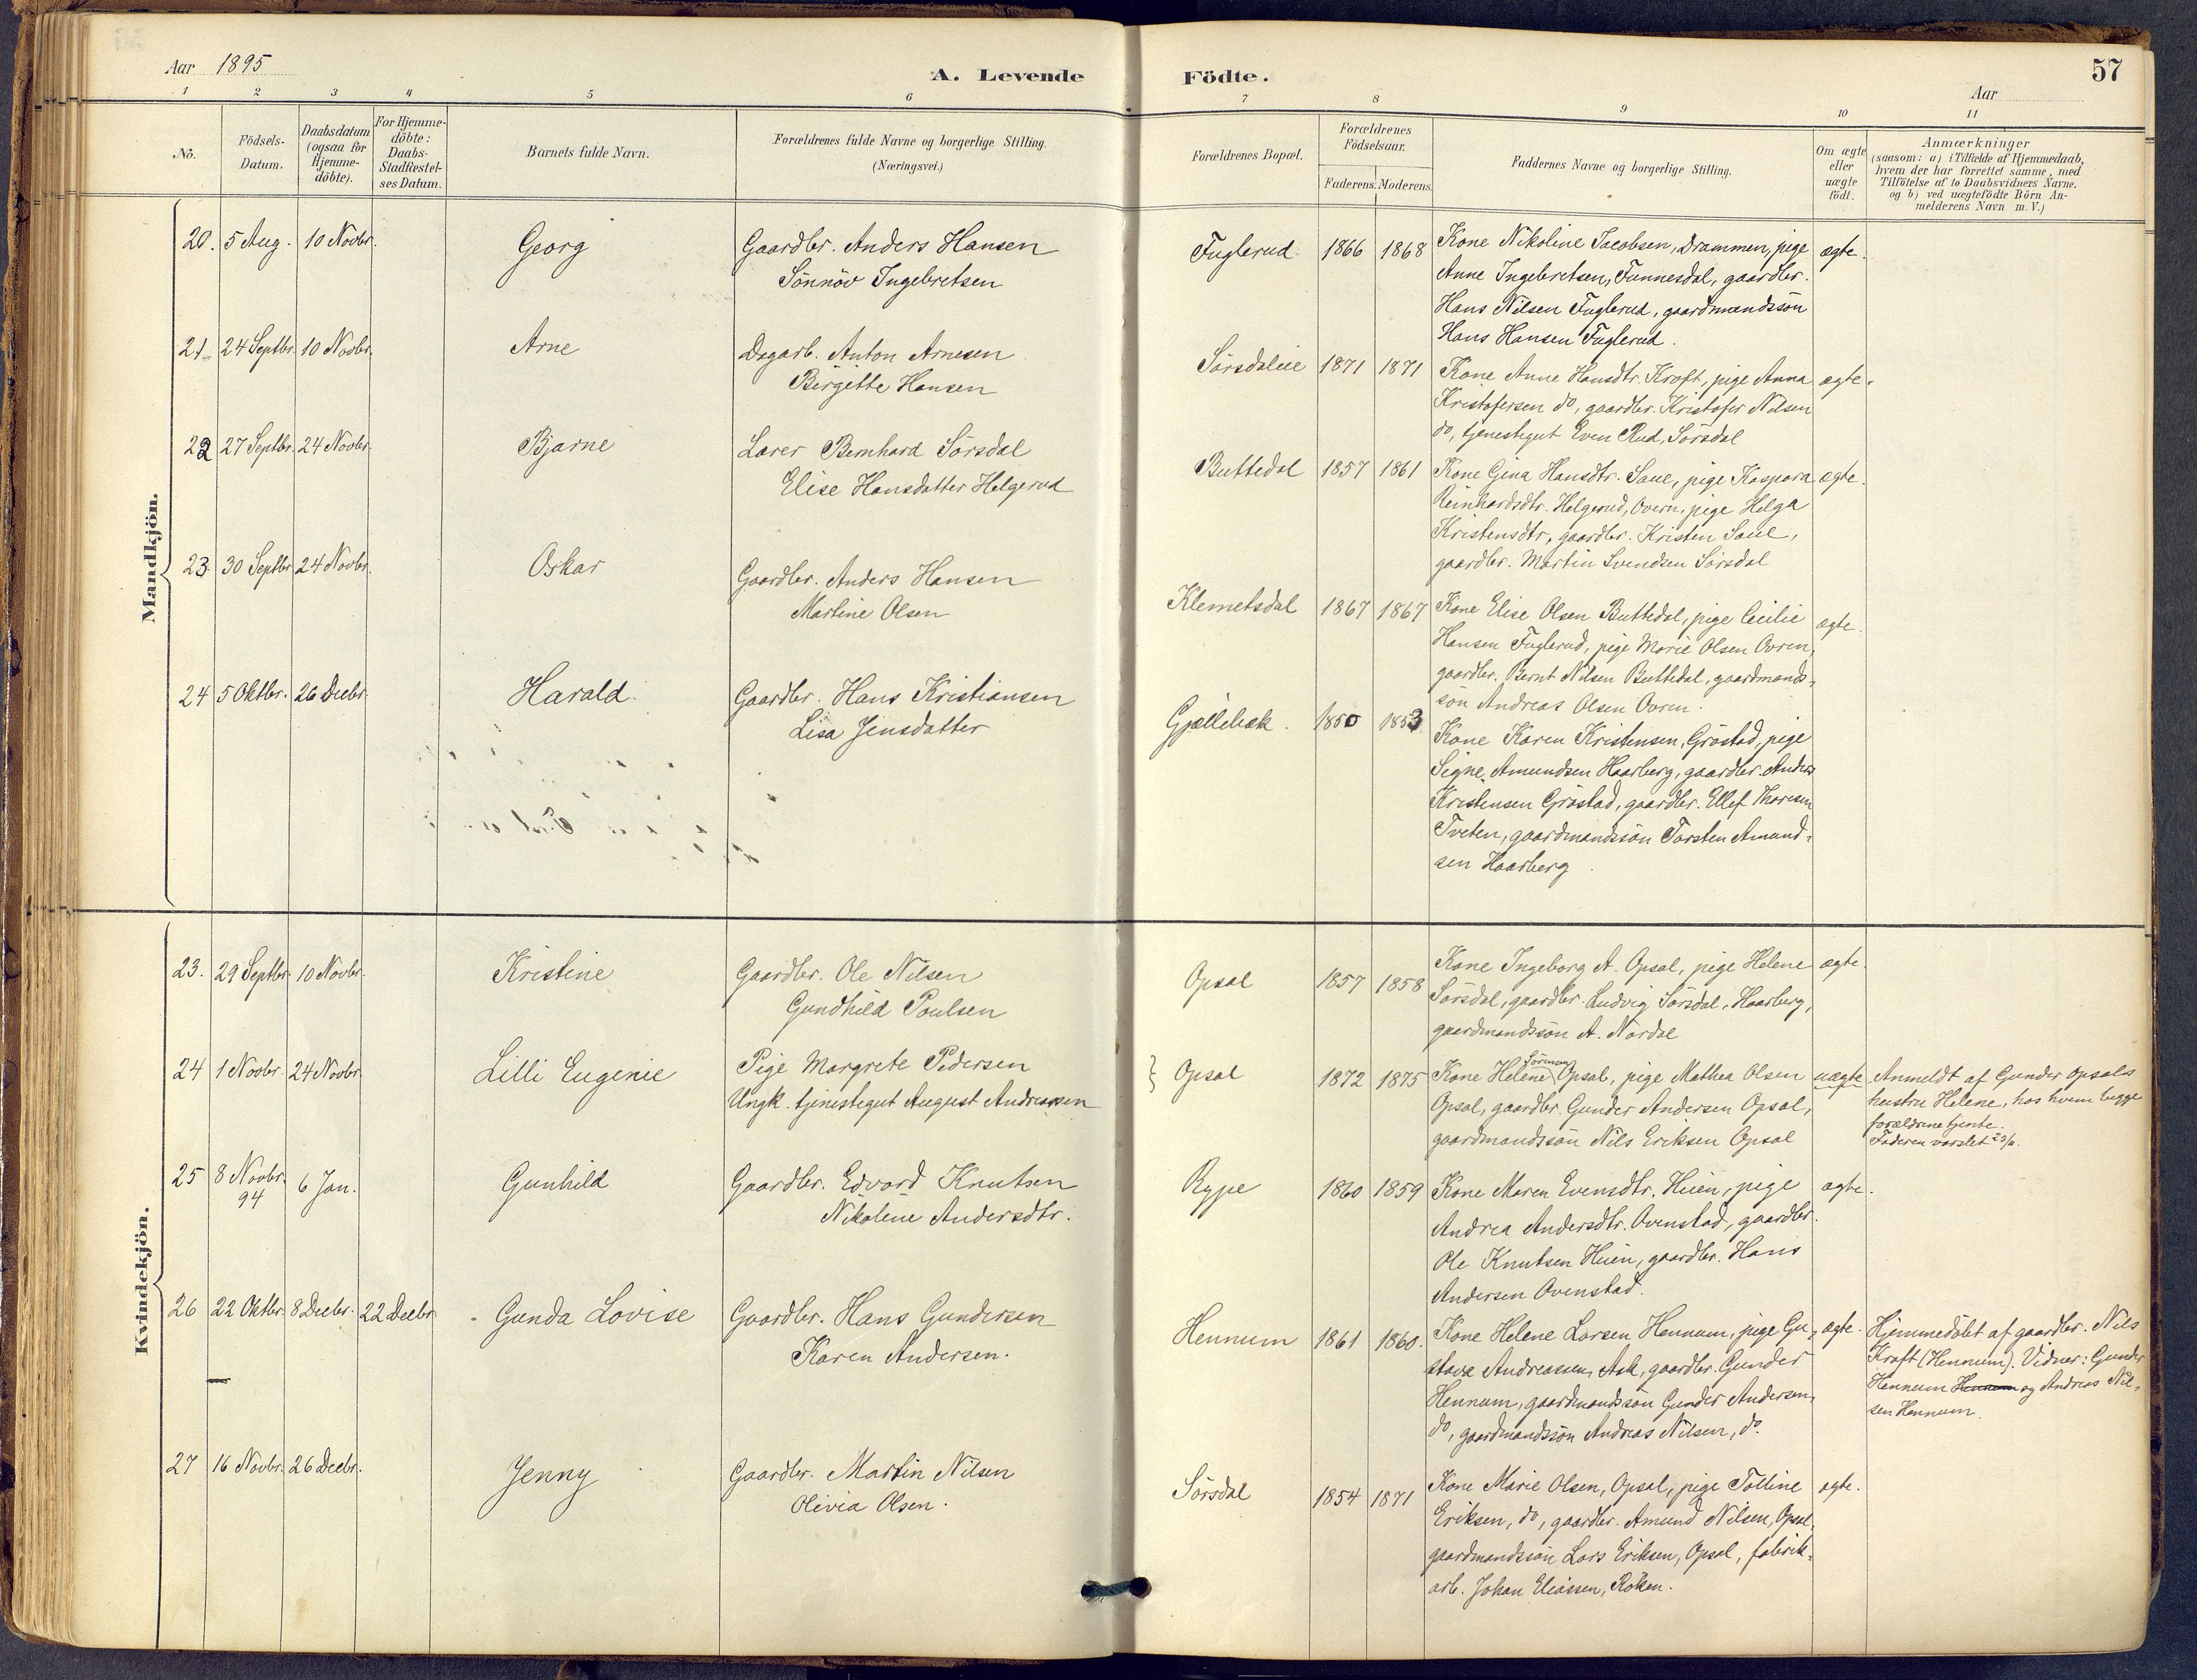 Aar 1895
A. Levende Födte.
57
Aar
1 2 3 4 5 6 7 8 9 10 11
No.
Födsels-Datum.
Daabsdatum (ogsaa for Hjemme-döbte).
For Hjemme-döbte: Daabs-Stadfæstel-ses Datum.
Barnets fulde Navn.
Forældrenes fulde Navne og borgerlige Stilling.
(Næringsvei.)
Forældrenes Bopæl.
Forældrenes Födselsaar.
Faderens. Moderens.
Faddernes Navne og borgerlige Stilling.
Om ægte eller uægte födt.
Anmærkninger
(saasom: a) i Tilfælde af Hjemmedaab,
hvem der har forrettet samme, med
Tilföielse af to Daabsvidners Navne,
og b) ved uægtefödte Börn An-
melderens Navn m. V.)
Mandkjön.
20. 5 Aug. 10 Novbr. Georg Gaardbr. Anders Hansen
Sönnöv Ingebretsen
Fuglerud 1866 1868 Kone Nikoline Jacobsen, Drammen, pige ægte.
Anne Ingebretsen, Tunnesdal, gaardbr.
Hans Nilsen Fuglerud, gaardmandssön
Hans Hansen Fuglerud.
21. 24 Septbr. 10 Novbr. Arne Dagarb. Anton Arnesen
Birgitte Hansen
Sörsdaleie 1871 1871 Kone Anne Hansdtr. Kroft, pige Anna ægte.
Kristofersen do, gaardbr. Kristofer Nilsen
do, tjenestegut Even Rud, Sörsdal
22 27 Septbr. 24 Novbr. Bjarne Lærer Bernhard Sörsdal
Elise Hansdatter Helgerud
Buttedal 1857 1861 Kone Gina Hansdtr. Saue, pige Kaspara ægte.
Reinhardsdtr. Helgerud, Overn, pige Helga
Kristensdtr, gaardbr. Kristen Saue,
gaardbr. Martin Svendsen Sörsdal
23. 30 Septbr 24 Novbr. Oskar Gaardbr. Anders Hansen
Martine Olsen
Klemetsdal 1867 1867 Kone Elise Olsen Buttedal, pige Cecilie ægte.
Hansen Fuglerud, pige Marie Olsen Ovren,
gaardbr. Bernt Nilsen Buttedal, gaardmands-
sön Andreas Olsen Ovren.
24 5 Oktbr. 26 Decbr Harald. Gaardbr. Hans Kristiansen
Lisa Jensdatter
Gjellebæk. 1850 1853 Kone Karen Kristensen, Gröstad, pige
Signe Amundsen Haarberg, gaardbr. Anders
Kristensen Gröstad, gaardbr. Ellef Thoresen
Tveten, gaardmandssön Torsten Amund-
sen Haarberg
Kvindekjön.
23. 29 Septbr. 10 Novbr. Kristine Gaardbr. Ole Nilsen
Gundhild Poulsen
Opsal 1857 1858 Kone Ingeborg A. Opsal, pige Helene ægte.
Sörsdal, gaardbr. Ludvig Sörsdal, Haarberg,
gaardmandssön A. Nordal
24 1 Novbr. 24 Novbr Lilli Eugenie Pige Margrete Pedersen
Ungk. tjenestegut August Andreassen
} Opsal 1872 1875 Kone Helene Sörensen Opsal, pige Mathea Olsen uægte
Opsal, gaardbr. Gunder Andersen Opsal,
gaardmandssön Nils Eriksen Opsal
Anmeldt af Gunder Opsals
hustru Helene, hos hvem begge
forældrene tjente.
Faderen varslet
25 8 Novbr. 94 6 Jan. Gunhild Gaardbr. Edvard Knutsen
Nikoline Andersdtr.
Rype 1860 1859 Kone Maren Evensdtr. Huien, pige ægte.
Andrea Andersdtr. Ovenstad, gaardbr.
Ole Knutsen Huien, gaardbr. Hans
Andersen Ovenstad.
26 22 Oktbr. 8 Decbr. 22 Decbr Gunda Lovise Gaardbr. Hans Gundersen
Karen Andersen.
Hennum 1861 1860. Kone Helene Larsen Hennum, pige Gu- ægte.
stava Andreassen, Ask, gaardbr. Gunder
Hennum, gaardmandssön Gunder Andersen,
do, gaardmandssön Andreas Nilsen, do.
Hjemmedöbt af gaardbr. Nils
Kraft (Hennum). Vidner: Gunder
Hennum Hennum og Andreas Nil-
sen Hennum.
27 16 Novbr. 26 Decbr. Jenny Gaardbr. Martin Nilsen
Olivia Olsen.
Sörsdal 1854 1871 Kone Marie Olsen, Opsal, pige Tolline ægte.
Eriksen, do, gaardbr. Amund Nilsen, Opsal,
gaardmandssön Lars Eriksen, Opsal, fabrik-
arb. Johan Eliassen, Röken.